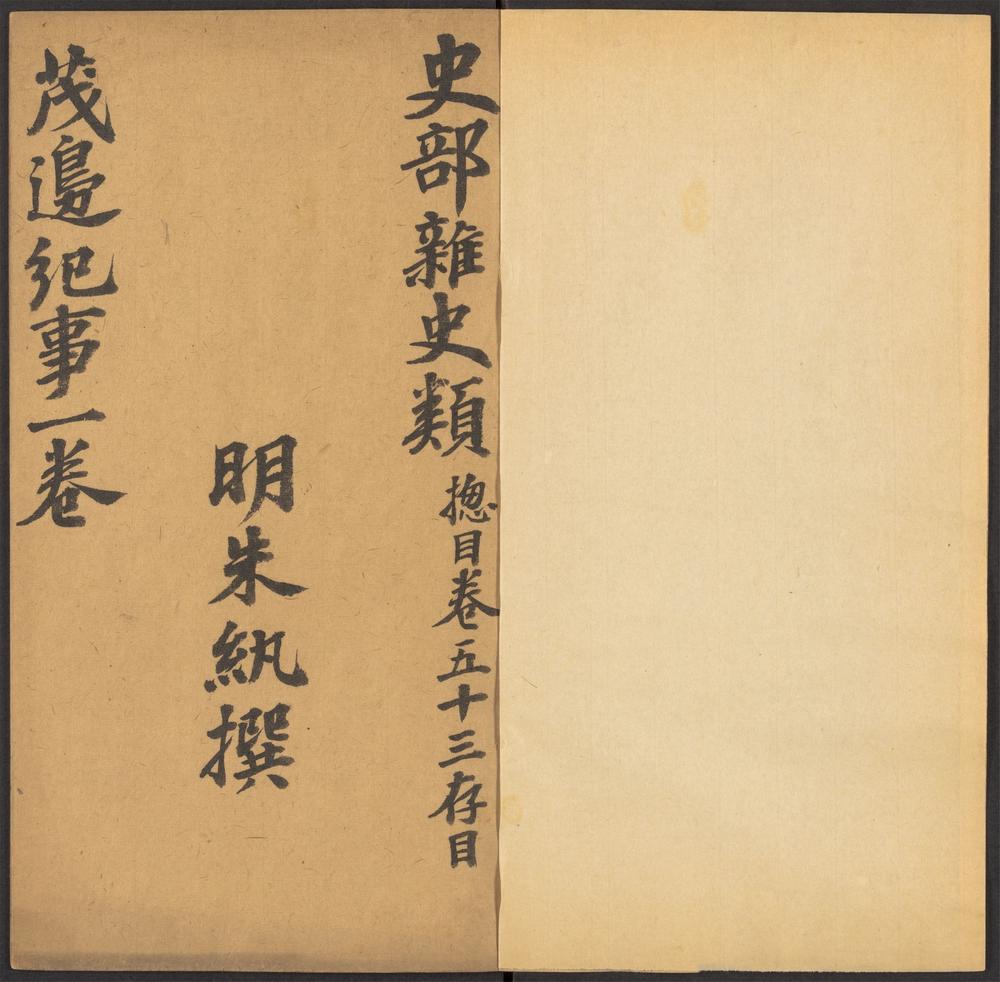 史部雜史類 揔目卷五十三存目
明朱紈撰
茂邊紀事一卷